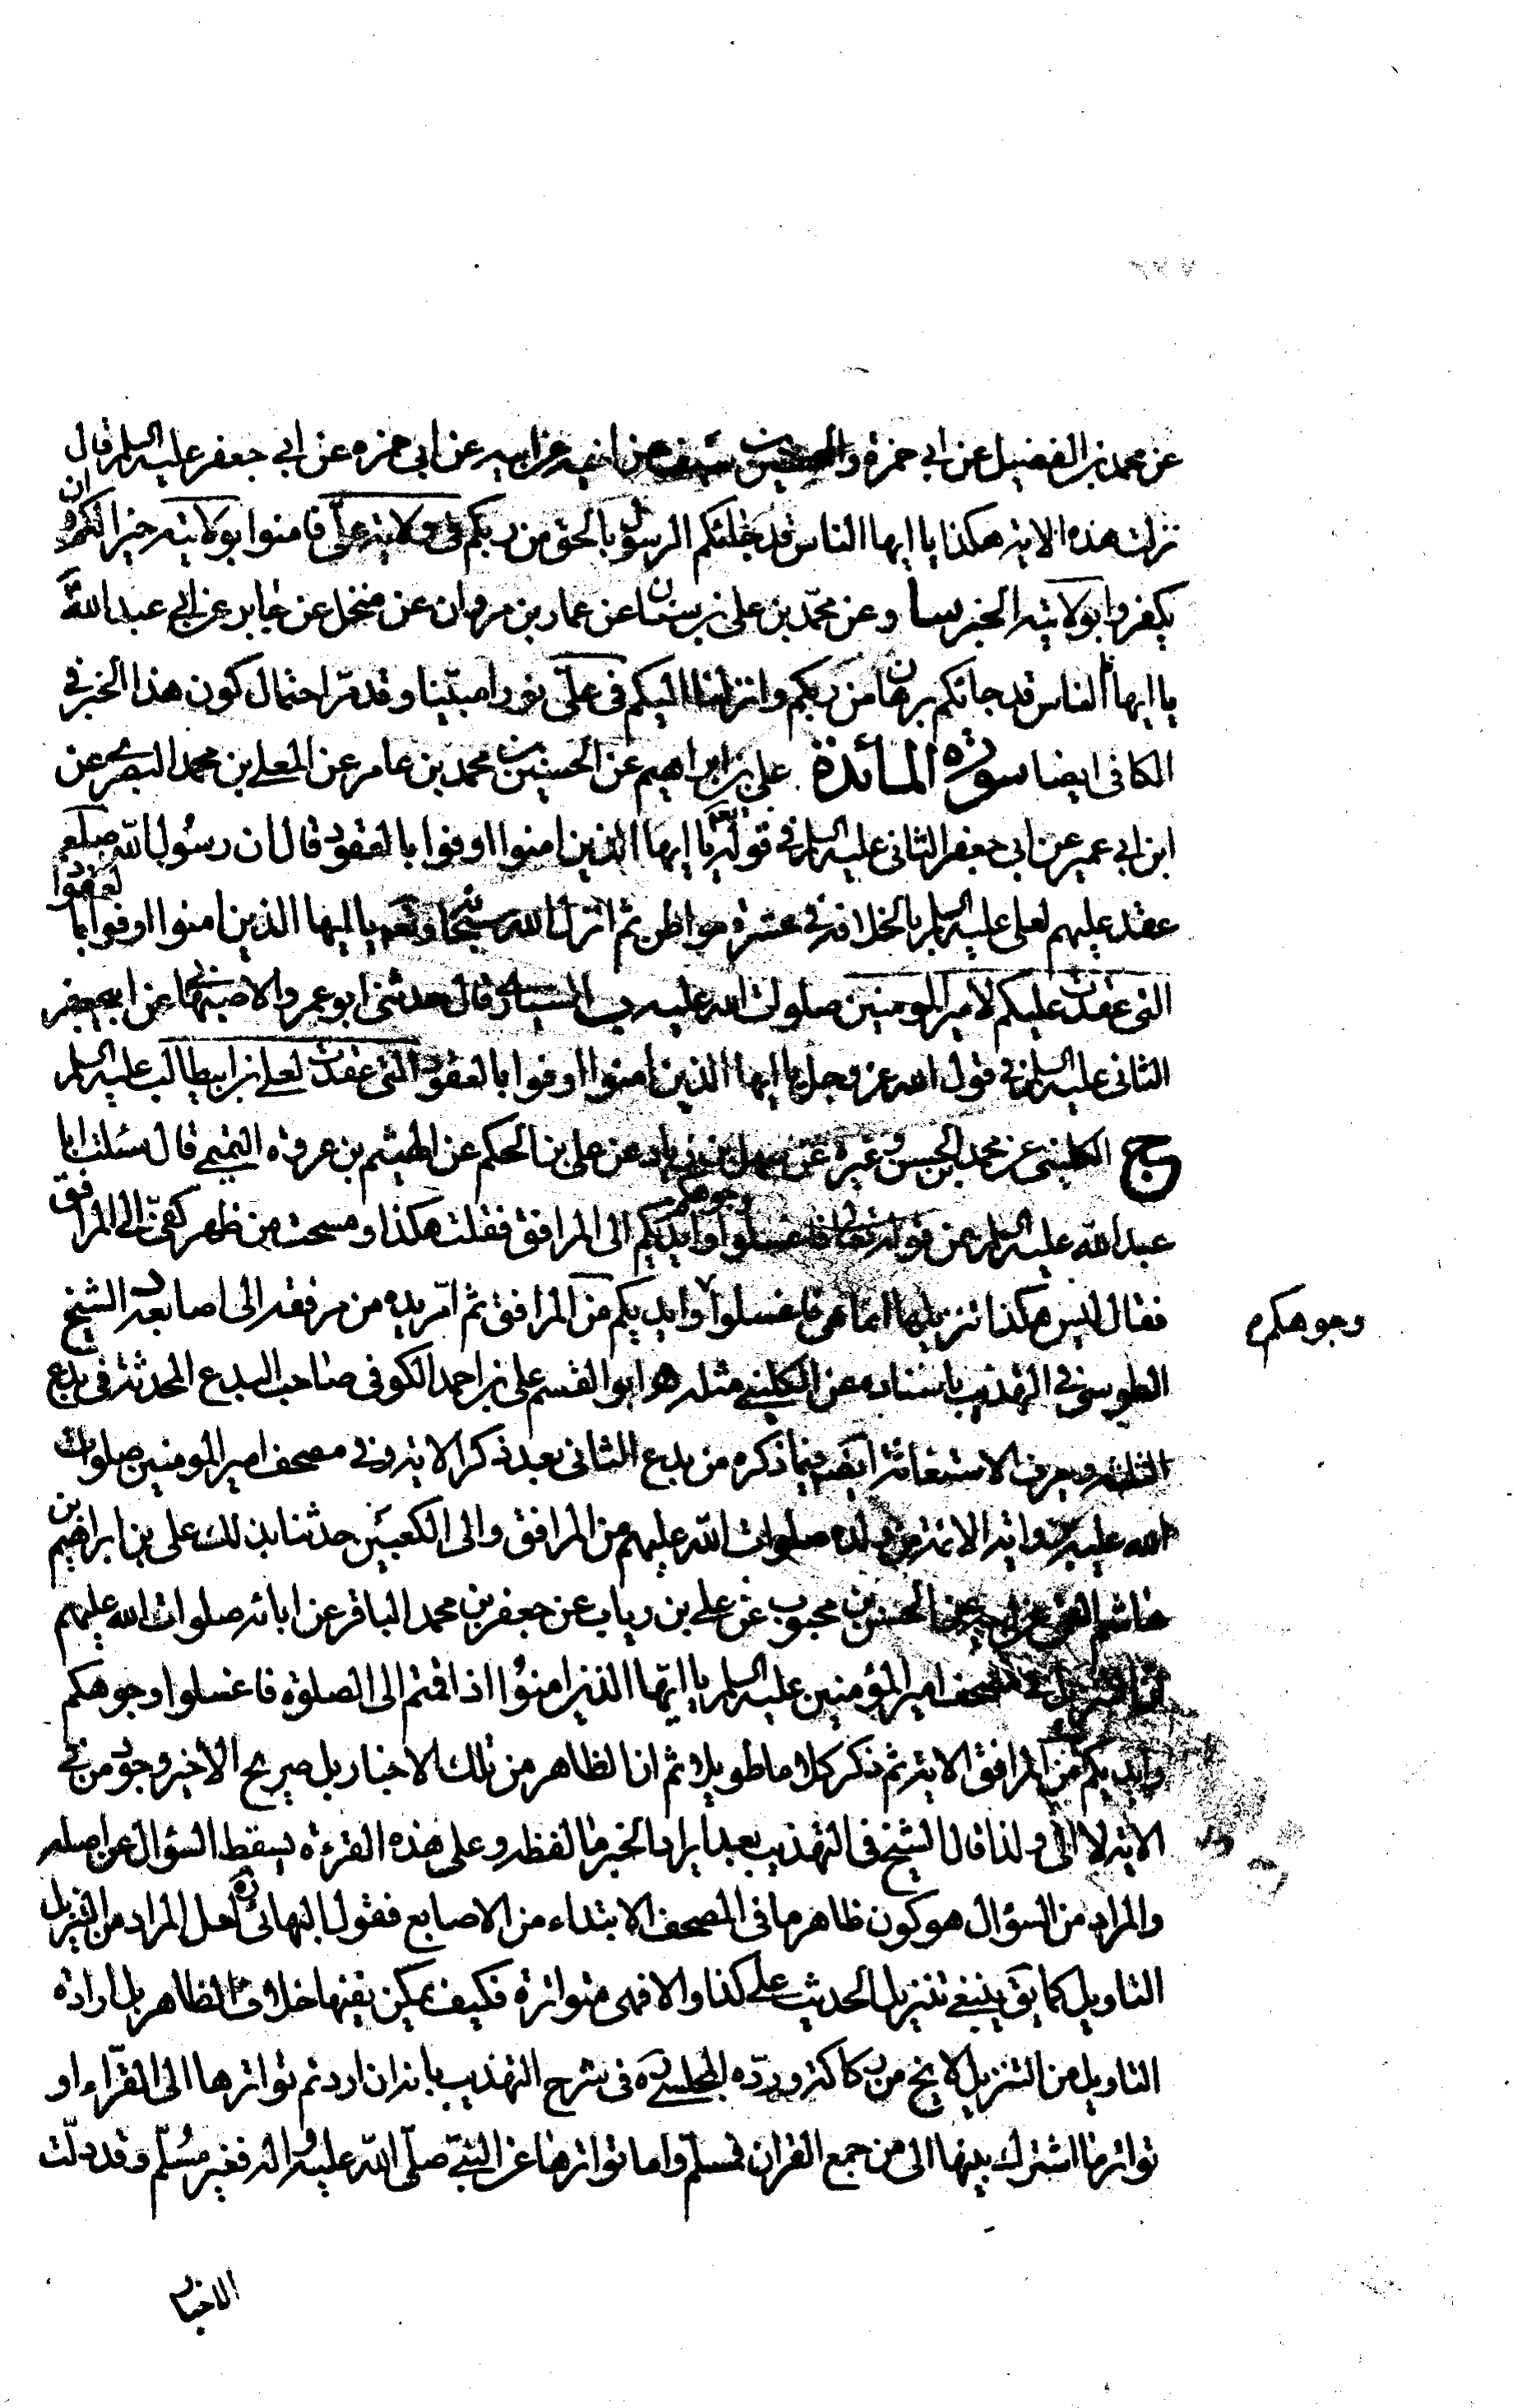 عن محمد بن الفضيل عن ابي حمزة والحسين بن سيف عن اخيه عن ابيه عن ابي حمزه عن ابي جعفر عليه السلم قال
نزلت هذه الايه هكذا يا ايها الناس قد جائكم الرسول بالحق من ربكم في ولاية علي فامنوا بولايته خيرا لكم وان
يكفروا بولايته الخبر وعن محمد بن علي بن سنان عن عمار بن مروان عن منخل عن جابر عن ابي عبد الله ع
يا ايها الناس قد جائكم برهان من ربكم وانزلنا اليكم في علي نورا مبينا وقد مر احتمال كون هذا الخبر في
الكافي ايضا سورة المائدة علي بن ابراهيم عن الحسين بن محمد بن عامر عن المعلى بن محمد البصري عن
ابن ابي عمير عن ابي جعفر الثاني عليه السلم في قوله تعه يا ايها الذين امنوا اوفوا بالعقود قال ان رسول الله صلعم
عقد عليهم لعلي عليه السلم بالخلافة في عشرة مواطن ثم انزل الله سبحانه وتعه يا ايها الذين امنوا اوفوا بالعقود
التي عقدت عليكم لامير المومنين صلوات الله عليه ب السياري قال حدثني ابو عمرو الاصبهاني عن ابيجعفر
الثاني عليه السلم في قول الله عز وجل يا ايها الذين امنوا اوفوا بالعقود التي عقدت لعلي بن ابيطالب عليه السلم
ج الكليني عن محمد بن الحسن وغيره عن سهل بن زياد عن علي بن الحكم عن الهيثم بن عروة التميمي قال سئلت ابا
عبد الله عليه السلم عن قوله تعالى فاغسلوا وجوهكم وايديكم الى المرافق فقلت هكذا ومسحت من ظهر كفي الى المرافق
فقال ليس هكذا تنزيلها انما هي فاغسلوا وايديكم من المرافق ثم امر يده من مرفقه الى اصابعه د الشيخ
وجوهكم
الطوسي في التهذيب باسناده عن الكليني مثله ه ابو القسم علي بن احمد الكوفي صاحب البدع المحدثة في بدع
الثلثة ويعرف الاستغاثة ايضه فيما ذكره من بدع الثاني بعد ذكر الايه وفي مصحف امير المومنين صلوات
الله عليه ورواية الائمة من ولده صلوات الله عليهم من المرافق والى الكعبين حدثنا بذلك علي بن ابراهيم بن
هاشم القمي عن ابيه عن الحسن بن محبوب عن علي بن رياب عن جعفر بن محمد الباقر عن ابائه صلوات الله عليهم
ان التنزيل في مصحف امير المؤمنين عليه السلم يا ايها الذين امنوا اذا قمتم الى الصلوة فاغسلوا وجوهكم
وايديكم من المرافق الايه ثم ذكر كلاما طويلا ثم ان الظاهر من تلك الاخبار بل صريح الاخير وجود من في
الايه لا الى ولذا قال الشيخ في التهذيب بعد ايراد الخبر ما لفظه وعلى هذه القرءة يسقط السؤال عن اصله
والمراد من السؤال هو كون ظاهر ما في المصحف الابتداء من الاصابع فقول البهائي ره لعل المراد من التنزيل
التاويل كما يق ينبغي تنزيل الحديث على كذا والا فهي متواترة فكيف يمكن نفيها خلاف الظاهر بل ارادة
التاويل من التنزيل لا يخ من ركاكة ورده المجلسي ره في شرح التهذيب بانه ان اردتم تواترها الى القراء او
تواتر ما اشترك بينها الى من جمع القران فمسلم واما تواترها عن النبي صلى الله عليه واله فغير مسلم وقد دلت
الاخبار